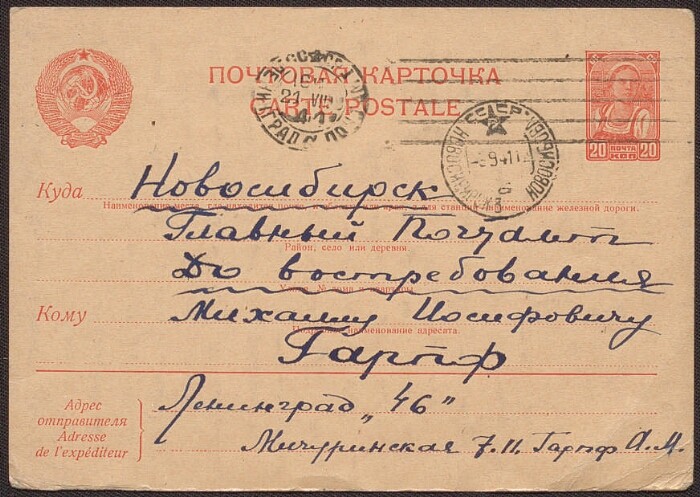 ПОЧТОВАЯ КАРТОЧКА
CARTE POSTALE
20 ПОЧТА КОП 20
Куда
Новосибирск
Наименование места, где находится почта
наименование железной дороги.
Главный Почтамт
Район, село или деревня.
До востребования
Кому
Михаилу Иосифовичу
наименование адресата.
Гарпф
Адрес отправителя
Adresse de l'expéditeur
Ленинград „46"
Мичуринская 7.11. Гарпф А.М.